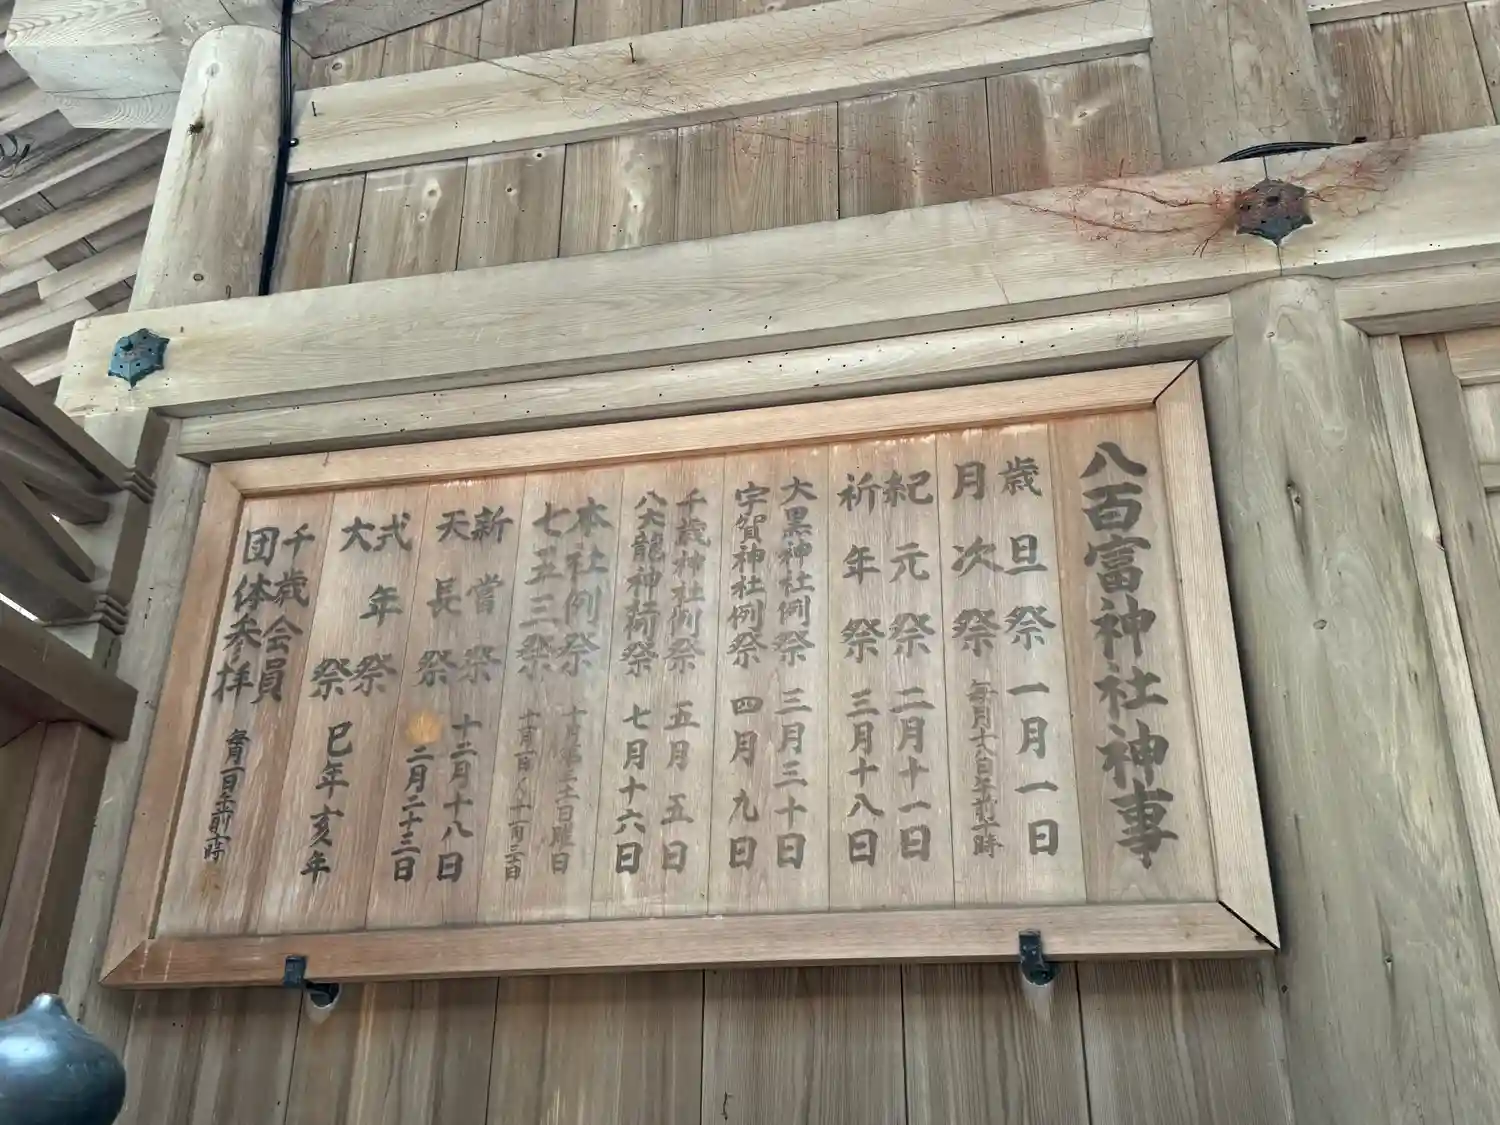 八百富神社神事
歳旦祭 一月一日
月次祭 毎月十八日午前十時
紀元祭 二月十一日
祈年祭 三月十八日
大黒神社例祭 三月三十日
宇賀神社例祭 四月九日
千歳神社例祭 五月五日
八大龍神社例祭 七月十六日
本社例祭 十月第三土日曜日
七五三祭
新嘗祭 十二月十八日
天長祭 二月二十三日
弐年祭
大祭 巳年亥年
千歳会員
団体参拝 毎月一日午前十時